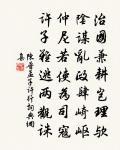 治國兼耕理歟
陰謀亂政肆崎嶇
仲尼若使為司寇
許子難逃兩觀誅
陳普孟子許行詞典網
集